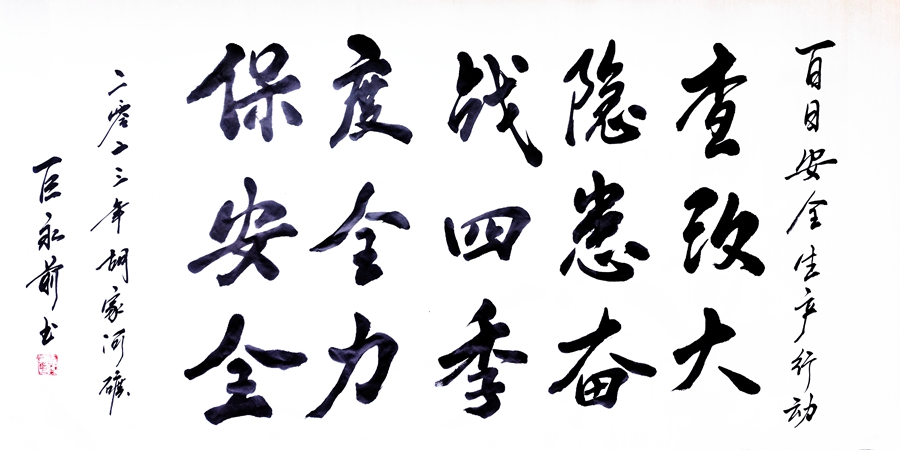 百日安全生产行动
查改大
隐患奋
战四季
度全力
保安全
二零二三年胡家河矿
巨永前书